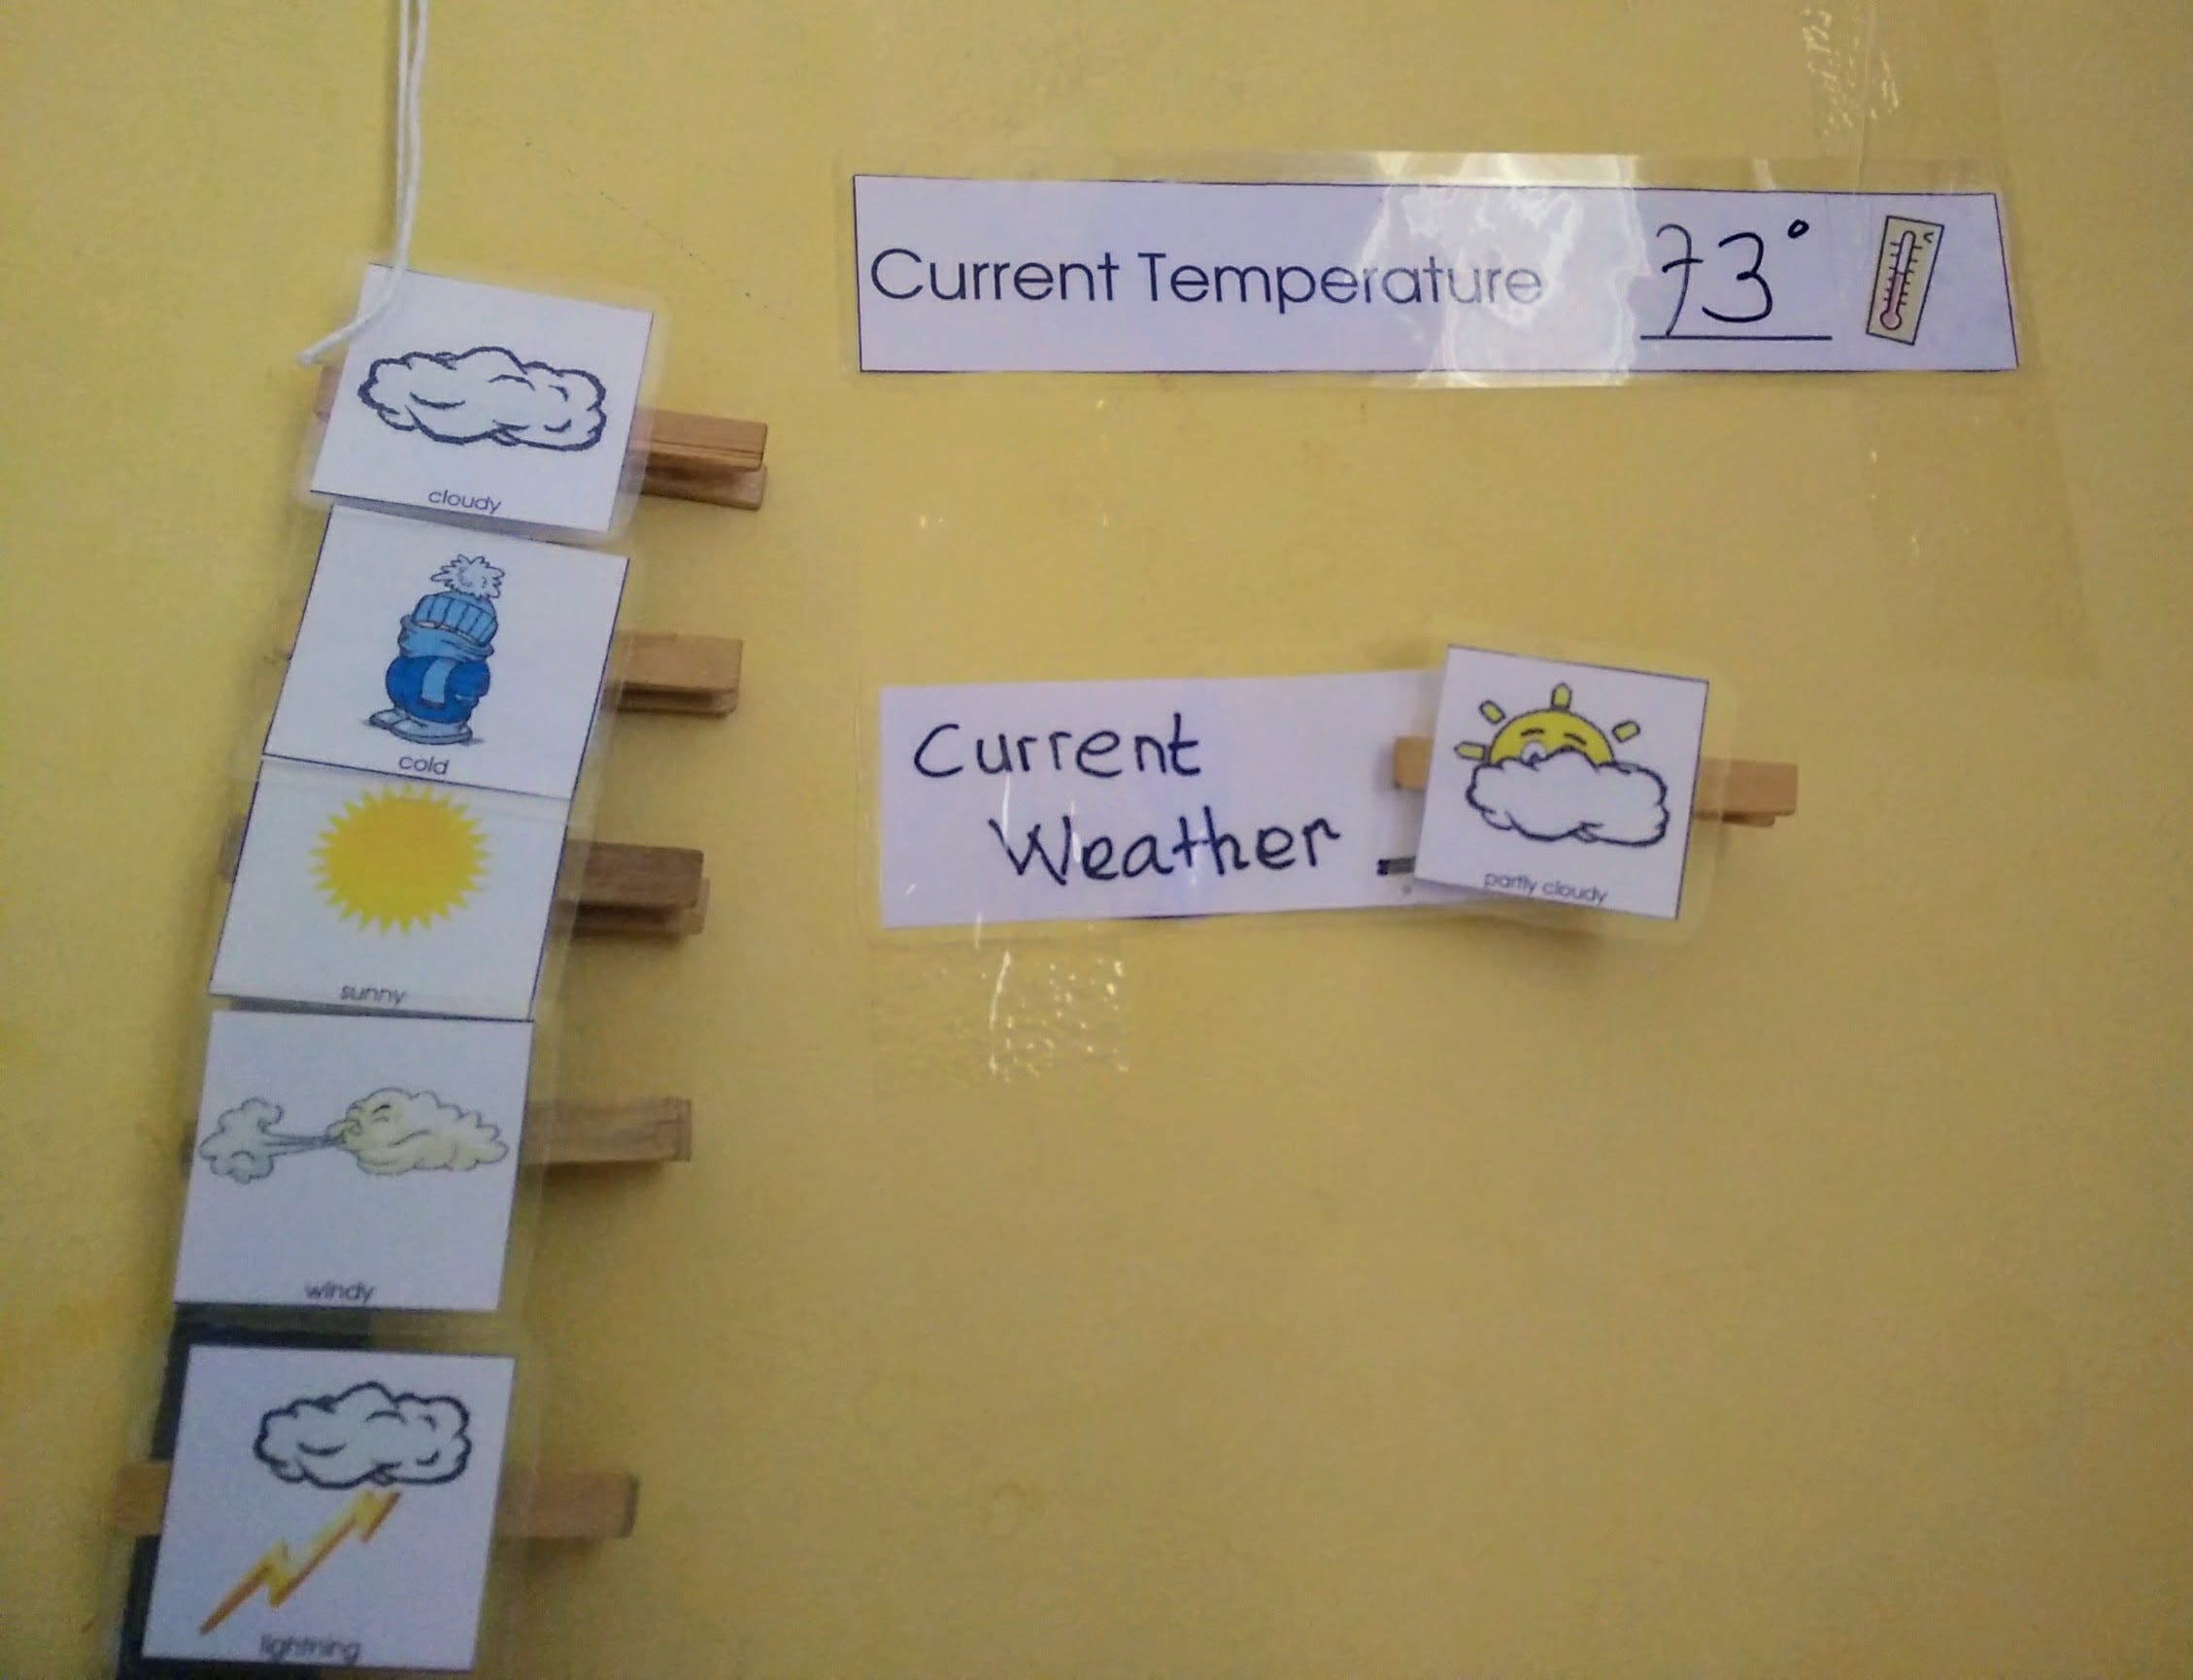 cloudy
cold
sunny
windy
lightning
Current Temperature 73°
Current
Weather
partly cloudy